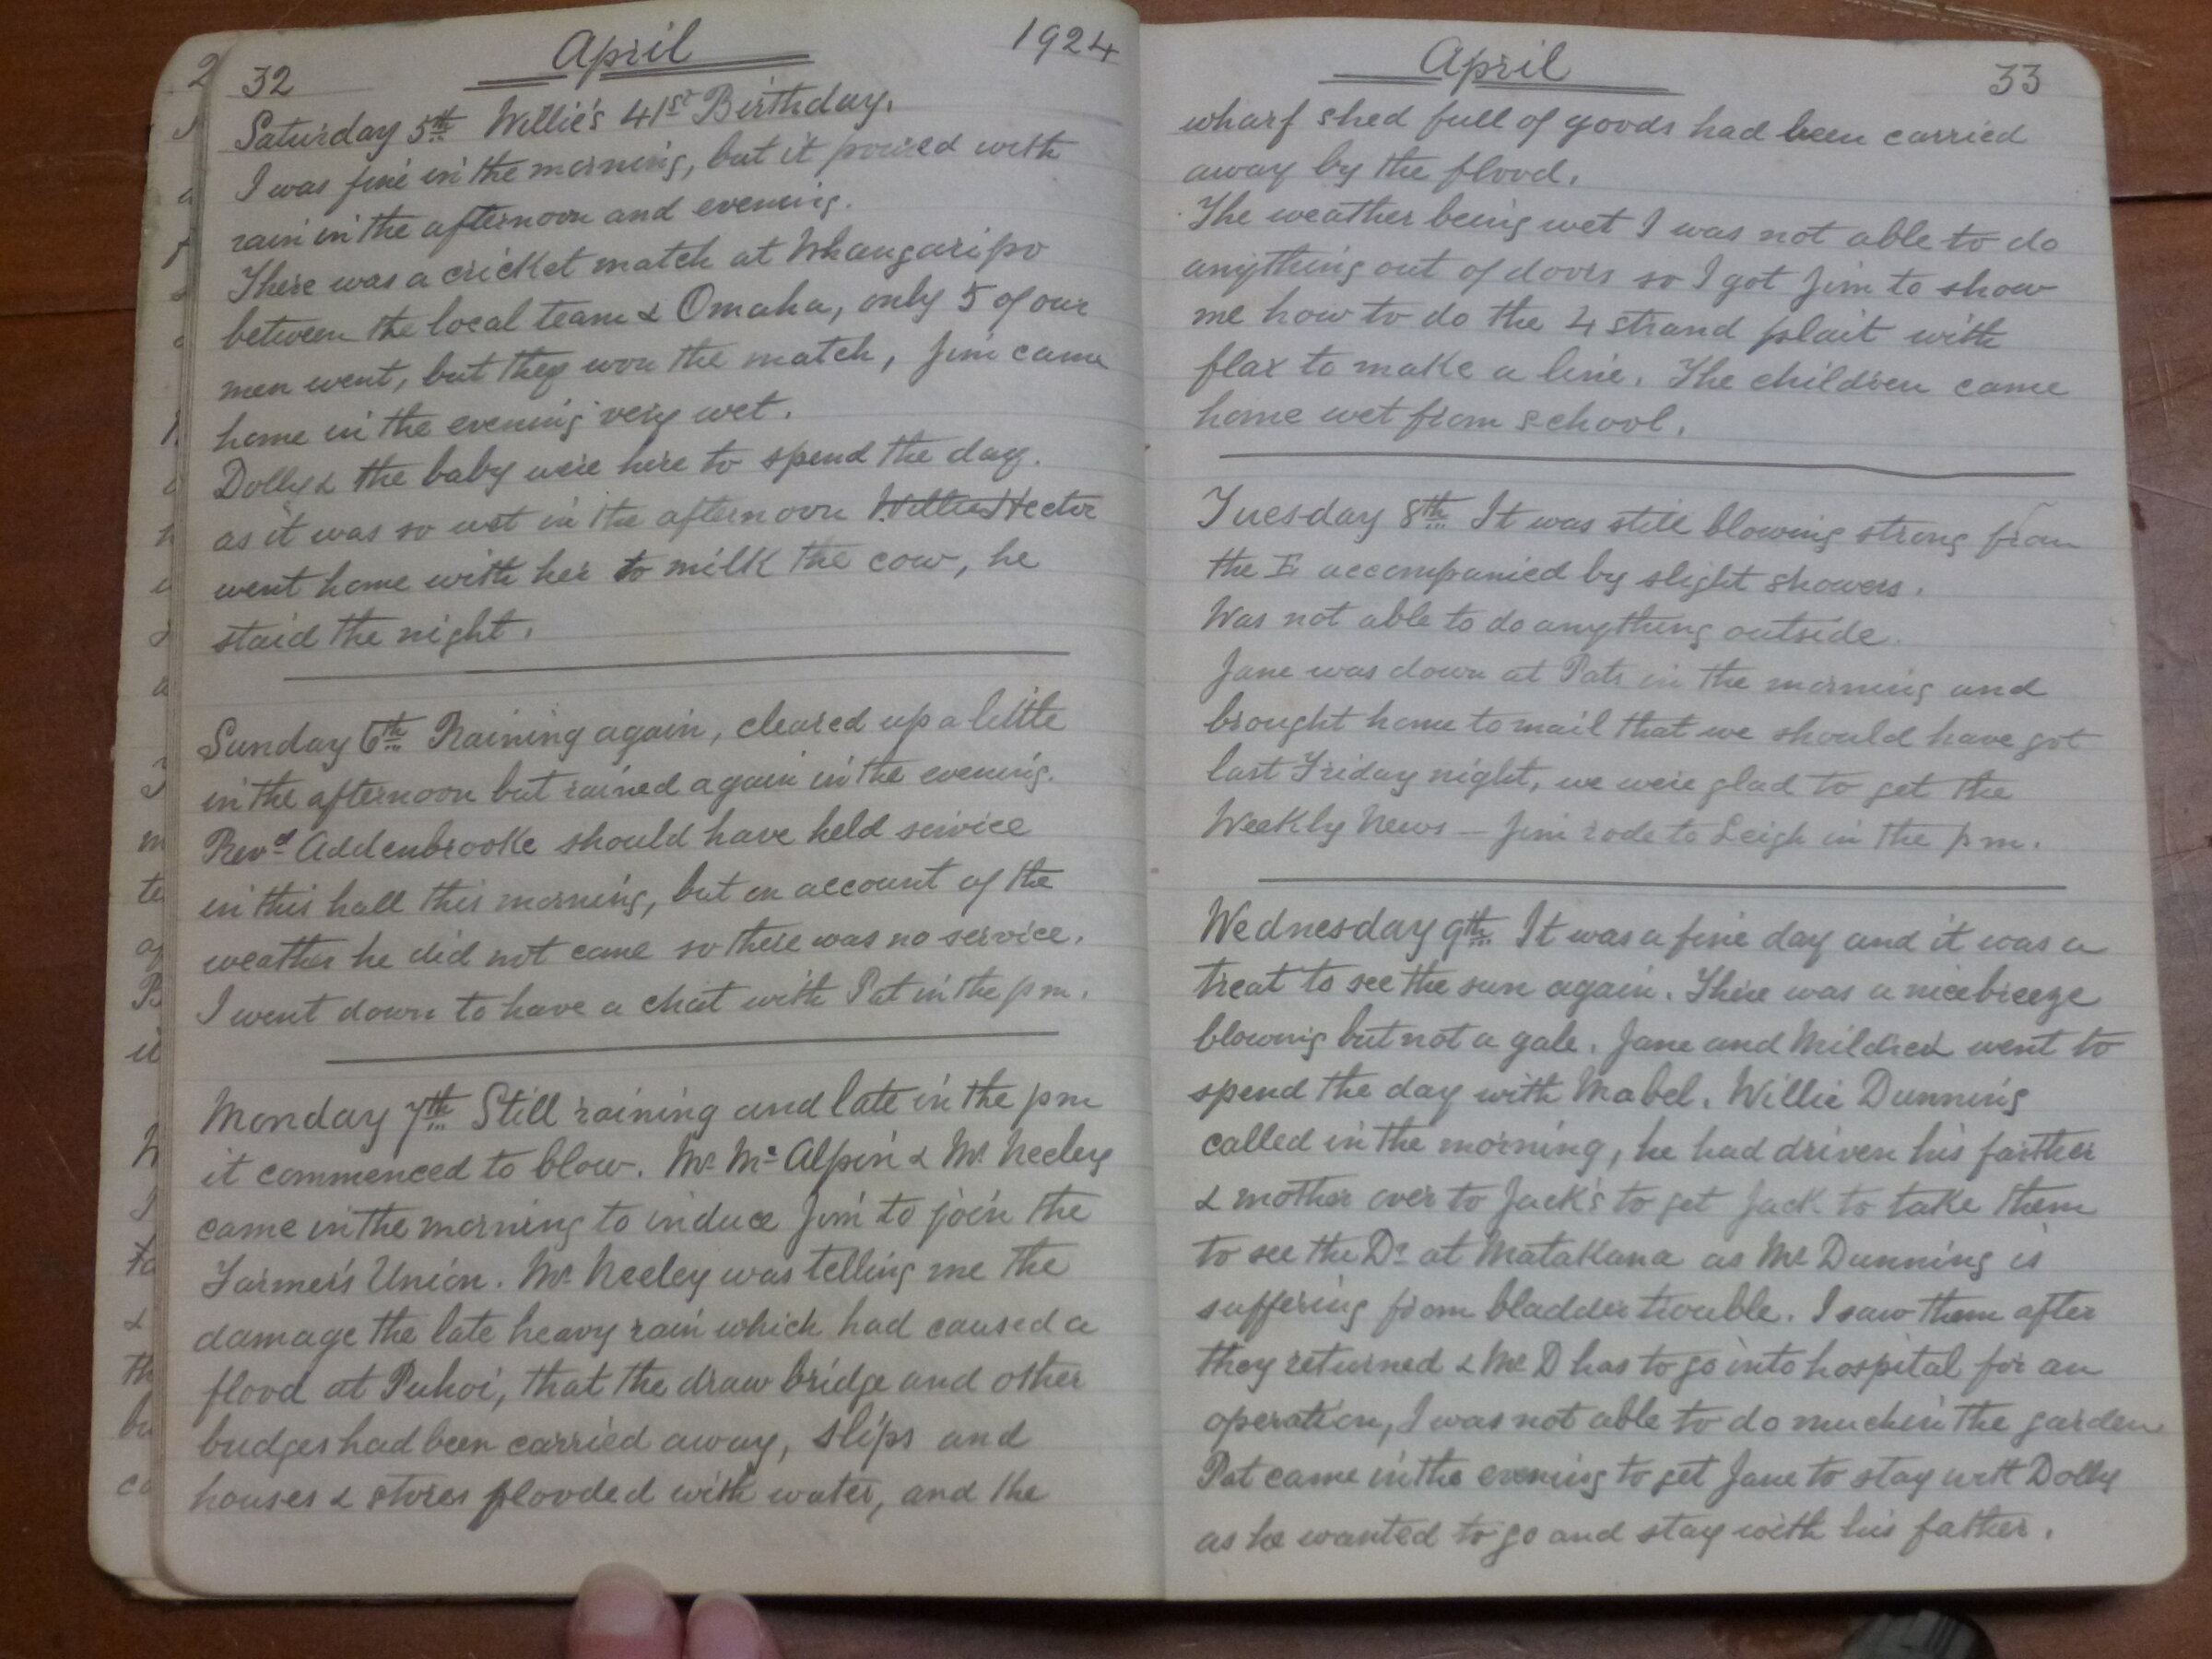 32 April 1924
Saturday 5th Willie's 41st Birthday.
I was fine in the morning, but it poured with
rain in the afternoon and evening.
There was a cricket match at Whangaripo
between the local team & Omaha, only 5 of our
men went, but they won the match, Jim came
home in the evening very wet.
Dolly & the baby were here to spend the day.
as it was so wet in the afternoon Willie Hector
went home with her to milk the cow, he
staid the night.
Sunday 6th Raining again, cleared up a little
in the afternoon but rained again in the evening.
Revd Addenbrooke should have held service
in this hall this morning, but on account of the
weather he did not come so there was no service.
I went down to have a chat with Pat in the pm.
Monday 7th Still raining and late in the pm
it commenced to blow. Mr Mc Alpin & Mr Neeley
came in the morning to induce Jim to join the
Farmer's Union. Mr Neeley was telling me the
damage the late heavy rain which had caused a
flood at Puhoi, that the draw bridge and other
bridges had been carried away, slips and
houses & stores flooded with water, and the
April 33
wharf shed full of goods had been carried
away by the flood.
The weather being wet I was not able to do
anything out of doors so I got Jim to show
me how to do the 4 strand plait with
flax to make a line. The children came
home wet from school.
Tuesday 8th It was still blowing strong from
the E. accompanied by slight showers.
Was not able to do anything outside.
Jane was down at Pats in the morning and
brought home to mail that we should have got
last Friday night, we were glad to get the
Weekly News — Jim rode to Leigh in the pm.
Wednesday 9th It was a fine day and it was a
treat to see the sun again. There was a nice breeze
blowing but not a gale. Jane and Mildred went to
spend the day with Mabel. Willie Dunning
called in the morning, he had driven his farther
& mother over to Jack's to get Jack to take them
to see the Dr at Matakana as Mr Dunning is
suffering from bladder trouble. I saw them after
they returned & Mr D has to go into hospital for an
operation, I was not able to do much in the garden
Pat came in the evening to get Jane to stay with Dolly
as he wanted to go and stay with his father.